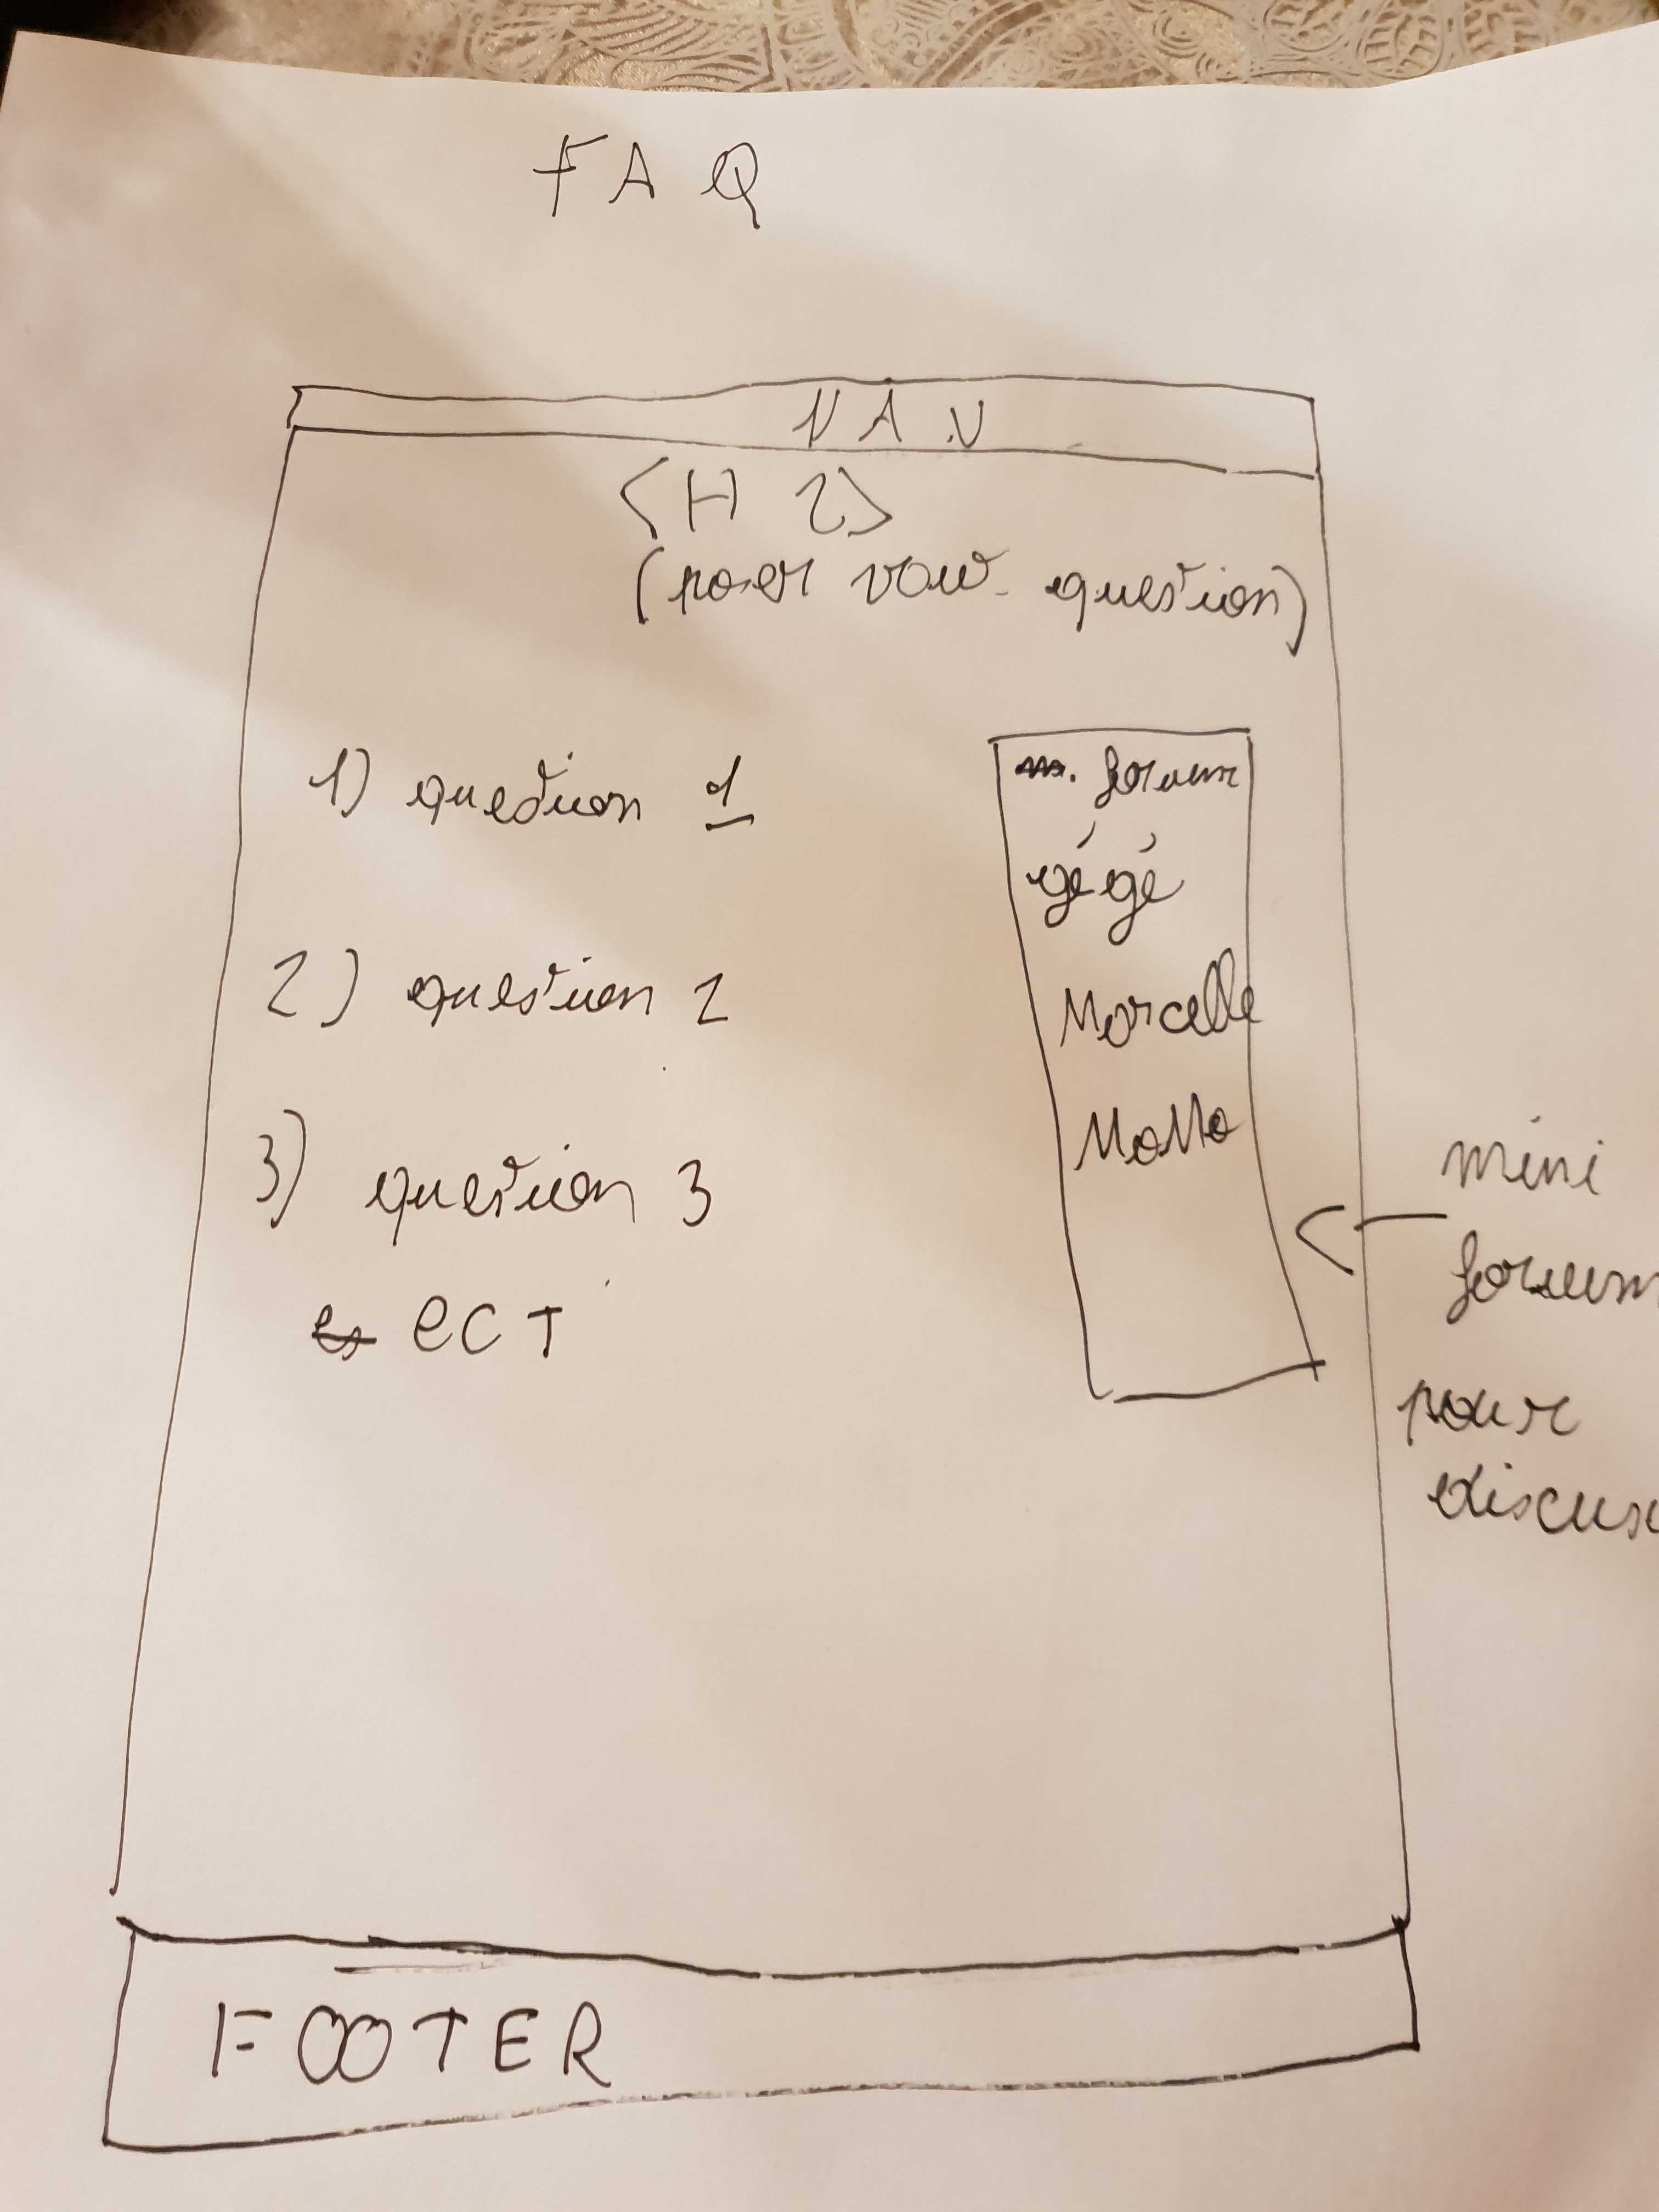 FAQ
NAV
<H2>
(poser vour question)
1) question 1
2) question 2
3) question 3
ECT
forum
gégé
Morcelle
MoMo
mini
forum
pour
discus
FOOTER